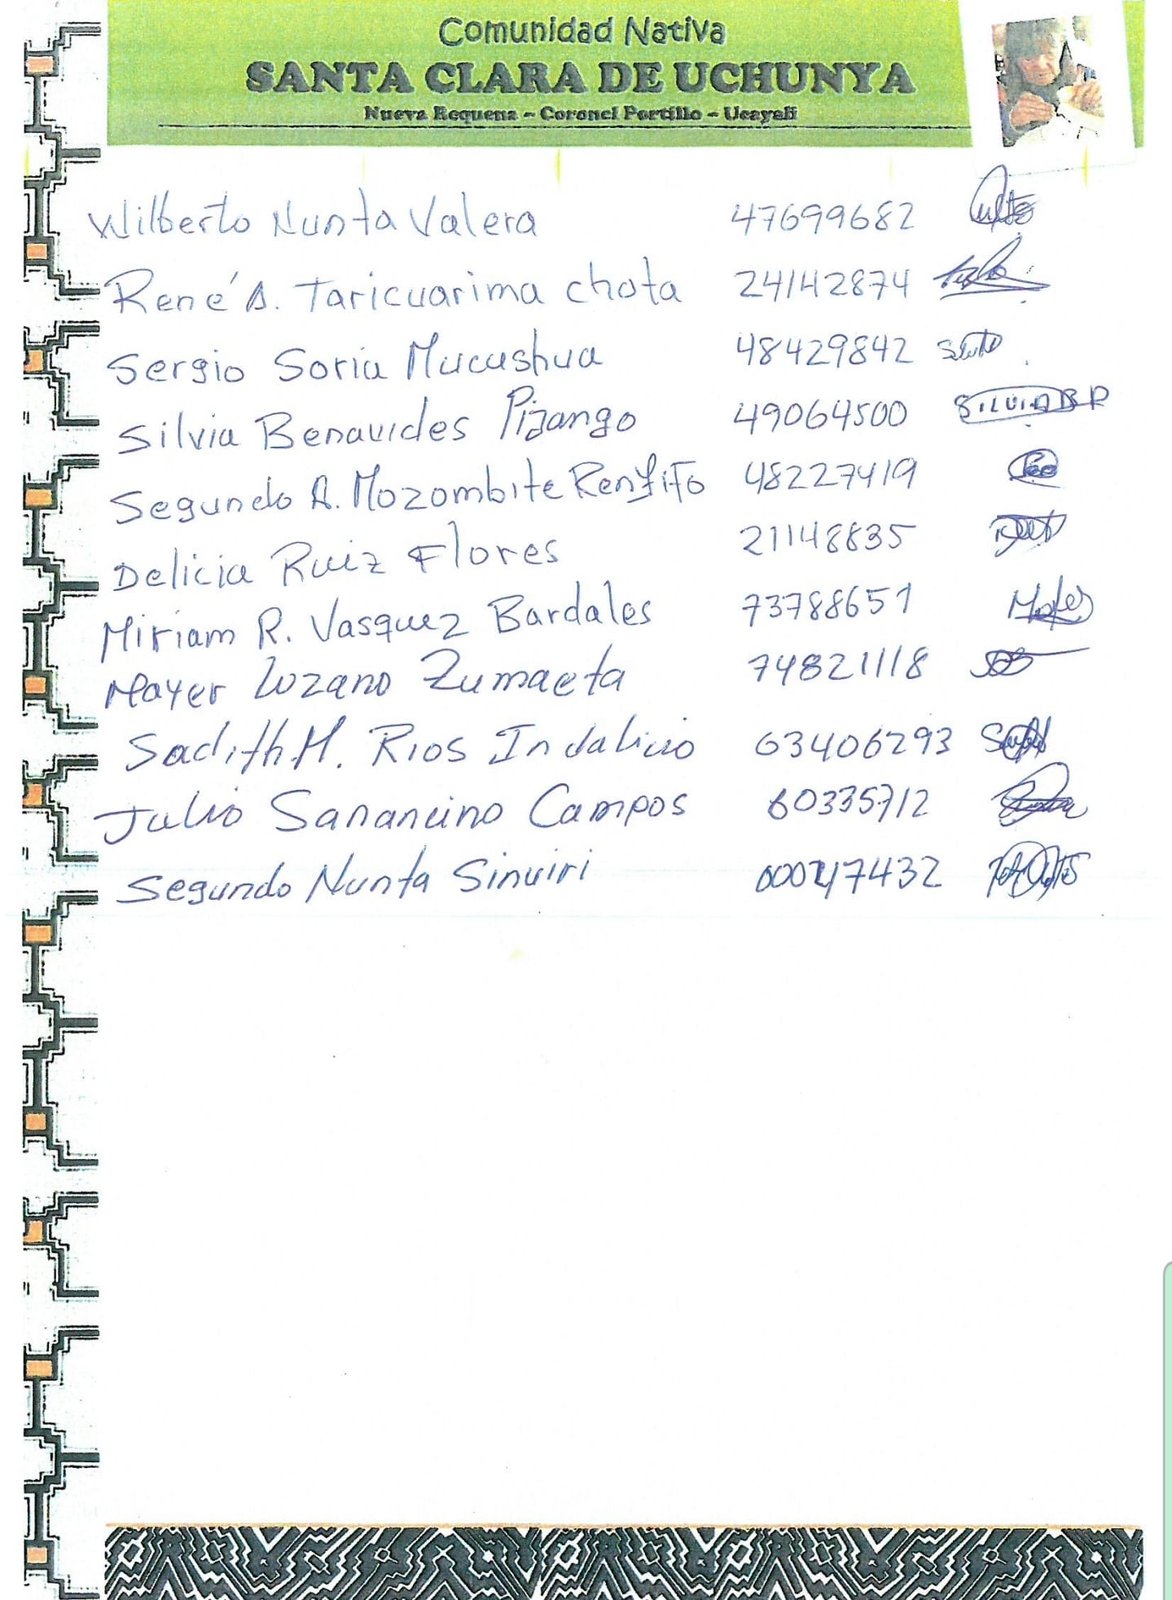 Comunidad Nativa
SANTA CLARA DE UCHUNYA
Nueva Requena – Coronel Portillo – Ucayali
Wilberto Nunta Valera 47699682
René A. Taricuarima chota 24142874
Sergio Soria Mucushua 48429842
Silvia Benavides Pizango 49064500 SILVIA B P
Segundo A. Mozombite Rengifo 48227419
Delicia Ruiz Flores 21148835
Miriam R. Vasquez Bardales 73788651
Mayer Lozano Zumaeta 74821118
Sadith M. Rios Indalicio 63406293
Julio Sanancino Campos 80335712
Segundo Nunta Sinuiri 00047432